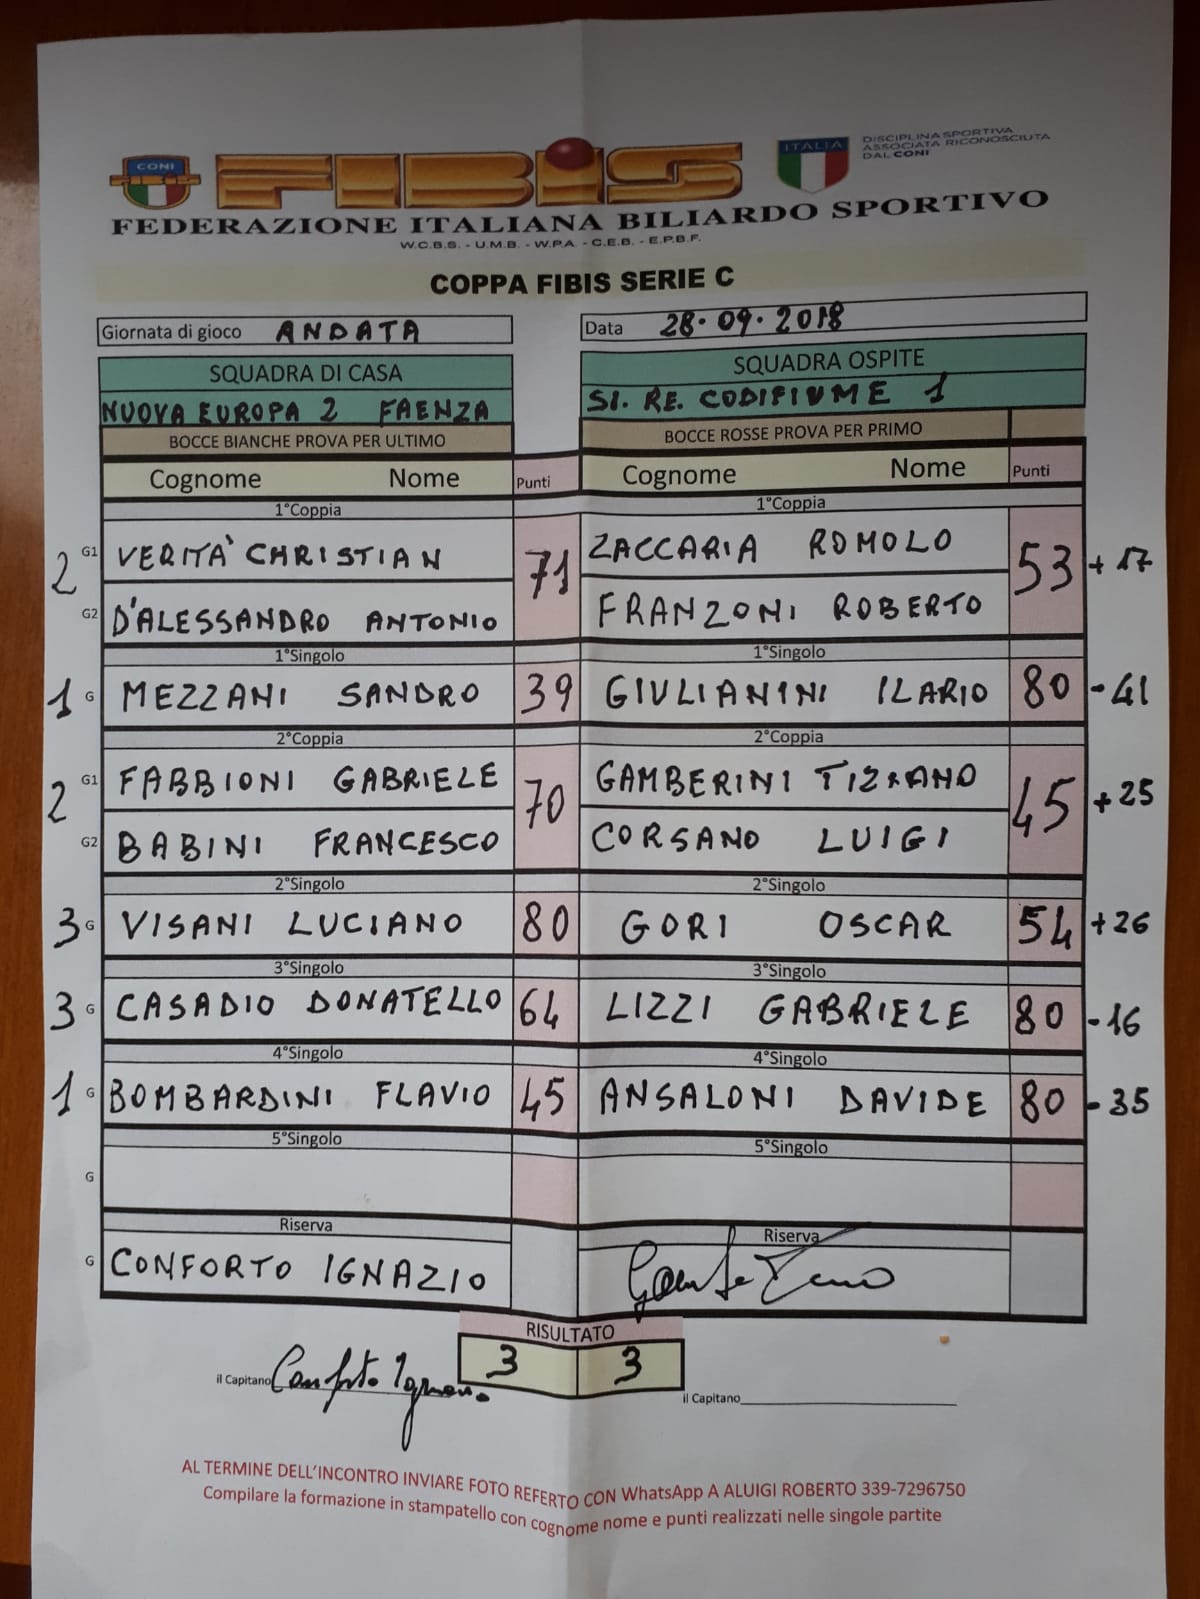 CONI
FIBIS
ITALIA
DISCIPLINA SPORTIVA
ASSOCIATA RICONOSCIUTA
DAL CONI
FEDERAZIONE ITALIANA BILIARDO SPORTIVO
W.C.B.S. - U.M.B. - W.P.A. - C.E.B. - E.P.B.F.
COPPA FIBIS SERIE C
Giornata di gioco ANDATA Data 28.09.2018
SQUADRA DI CASA SQUADRA OSPITE
NUOVA EUROPA 2 FAENZA SI. RE. CODIFIUME 1
BOCCE BIANCHE PROVA PER ULTIMO BOCCE ROSSE PROVA PER PRIMO
Cognome Nome Punti Cognome Nome Punti
1°Coppia 1°Coppia
2 G1 VERITA' CHRISTIAN 71 ZACCARIA ROMOLO 53 + 17
G2 D'ALESSANDRO ANTONIO FRANZONI ROBERTO
1°Singolo 1°Singolo
1 G MEZZANI SANDRO 39 GIULIANINI ILARIO 80 - 41
2°Coppia 2°Coppia
2 G1 FABBIONI GABRIELE 70 GAMBERINI TIZIANO 45 + 25
G2 BABINI FRANCESCO CORSANO LUIGI
2°Singolo 2°Singolo
3 G VISANI LUCIANO 80 GORI OSCAR 54 + 26
3°Singolo 3°Singolo
3 G CASADIO DONATELLO 64 LIZZI GABRIELE 80 - 16
4°Singolo 4°Singolo
1 G BOMBARDINI FLAVIO 45 ANSALONI DAVIDE 80 - 35
5°Singolo 5°Singolo
G
Riserva Riserva
G CONFORTO IGNAZIO
RISULTATO
3 3
il Capitano Conforto Ignazio il Capitano
AL TERMINE DELL'INCONTRO INVIARE FOTO REFERTO CON WhatsApp A ALUIGI ROBERTO 339-7296750
Compilare la formazione in stampatello con cognome nome e punti realizzati nelle singole partite